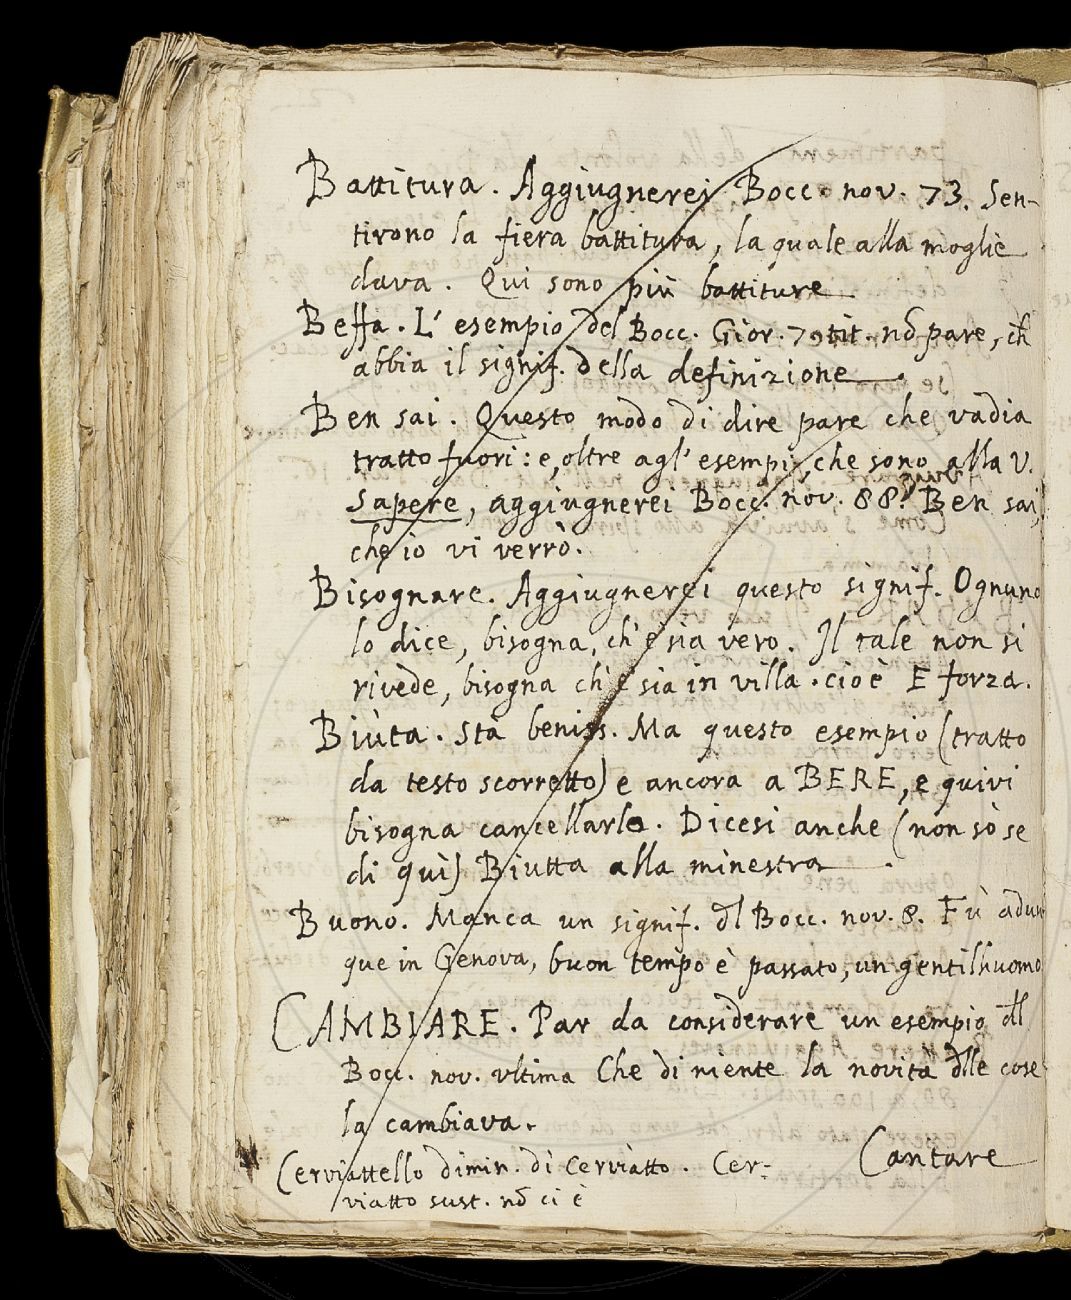 Battitura. Aggiugnerei Bocc. nov. 73. Sen-
tirono la fiera battitura, la quale alla moglie
dava. Qui sono più battiture
Beffa. L' esempio del Bocc. Gior. 7. tit. nō pare, ch'
abbia il signif. della definizione.
Ben sai. Questo modo di dire pare che vadia
tratto fuori: e, oltre agl' esempi, che sono alla V.
Sapere, aggiugnerei Bocc. nov. 88. Ben sai,
che io vi verrò.
Bisognare. Aggiugnerei questo signif. Ognuno
lo dice, bisogna, ch' e' sia vero. Il tale non si
rivede, bisogna ch' e' sia in villa. cioè E forza.
Biùta. Stà beniss. Ma questo esempio (tratto
da testo scorretto) è ancora a BERE, e quivi
bisogna cancellarlo. Dicesi anche (non sò se
di quì) Biutta alla minestra.
Buono. Manca un signif. dl Bocc. nov. 8. Fù adun
que in Genova, buon tempo è passato, un gentilhuomo
CAMBIARE. Par da considerare un esempio dl
Bocc. nov. vltima Che di niente la novità dlle cose
la cambiava.
Cerviattello dimin. di Cerviatto. Cer-
viatto sust. nō ci è
Cantare